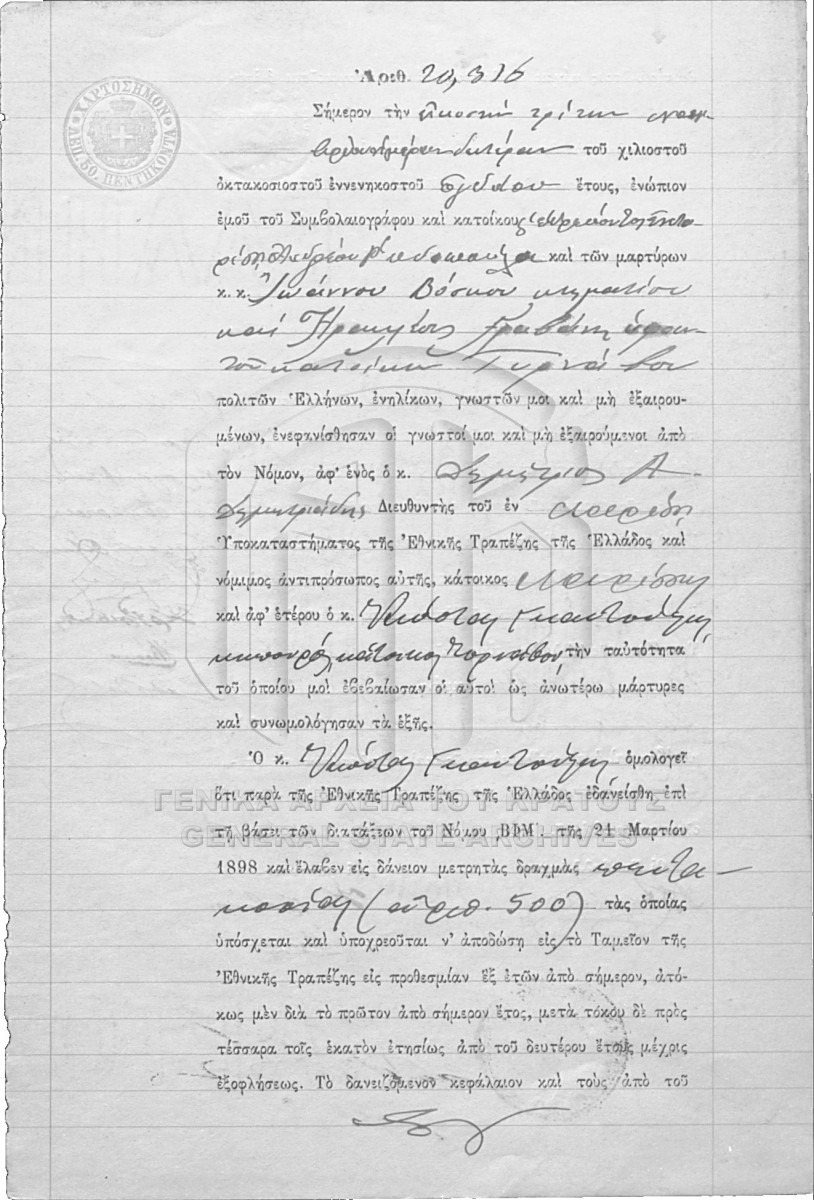 Ἀριθ. 20,316
ΧΑΡΤΟΣΗΜΟΝ
ΛΕΠ. 50. ΠΕΝΤΗΚΟΝΤΑ
Σήμερον τὴν εἰκοστὴν τρίτην Νοεμ-
βρίου ἡμέραν Δευτέραν τοῦ χιλιοστοῦ
ὀκτακοσιοστοῦ ἐννενηκοστοῦ ὀγδόου ἔτους, ἐνώπιον
ἐμοῦ τοῦ Συμβολαιογράφου καὶ κατοίκου
καὶ τῶν μαρτύρων
κ. κ. Ἰωάννου Βόσκου κτηματίου
καὶ
κατοίκων Τυρνάβου
πολιτῶν Ἑλλήνων, ἐνηλίκων, γνωστῶν μοι καὶ μὴ ἐξαιρου-
μένων, ἐνεφανίσθησαν οἱ γνωστοί μοι καὶ μὴ ἐξαιρούμενοι ἀπὸ
τὸν Νόμον, ἀφ' ἑνὸς ὁ κ. Δημήτριος Α.
Δημητριάδης Διευθυντὴς τοῦ ἐν Λαρίσῃ
Ὑποκαταστήματος τῆς Ἐθνικῆς Τραπέζης τῆς Ἑλλάδος καὶ
νόμιμος ἀντιπρόσωπος αὐτῆς, κάτοικος Λαρίσης
καὶ ἀφ' ἑτέρου ὁ κ. Κώστας
κηπουρός, κάτοικος Τυρνάβου, τὴν ταὐτότητα
τοῦ ὁποίου μοὶ ἐβεβαίωσαν οἱ αὐτοὶ ὡς ἀνωτέρω μάρτυρες
καὶ συνωμολόγησαν τὰ ἑξῆς.
Ὁ κ. Κώστας ὁμολογεῖ
ὅτι παρὰ τῆς Ἐθνικῆς Τραπέζης τῆς Ἑλλάδος ἐδανείσθη ἐπὶ
ΓΕΝΙΚΑ ΑΡΧΕΙΑ ΤΟΥ ΚΡΑΤΟΥΣ
τῇ βάσει τῶν διατάξεων τοῦ Νόμου ͵ΒΦΜ΄. τῆς 21 Μαρτίου
GENERAL STATE ARCHIVES
1898 καὶ ἔλαβεν εἰς δάνειον μετρητὰς δραχμὰς πεντα-
κοσίας (ἀριθ. 500) τὰς ὁποίας
ὑπόσχεται καὶ ὑποχρεοῦται ν' ἀποδώσῃ εἰς τὸ Ταμεῖον τῆς
Ἐθνικῆς Τραπέζης εἰς προθεσμίαν ἓξ ἐτῶν ἀπὸ σήμερον, ἀτό-
κως μὲν διὰ τὸ πρῶτον ἀπὸ σήμερον ἔτος, μετὰ τόκου δὲ πρὸς
τέσσαρα τοῖς ἑκατὸν ἐτησίως ἀπὸ τοῦ δευτέρου ἔτους μέχρις
ἐξοφλήσεως. Τὸ δανειζόμενον κεφάλαιον καὶ τοὺς ἀπὸ τοῦ